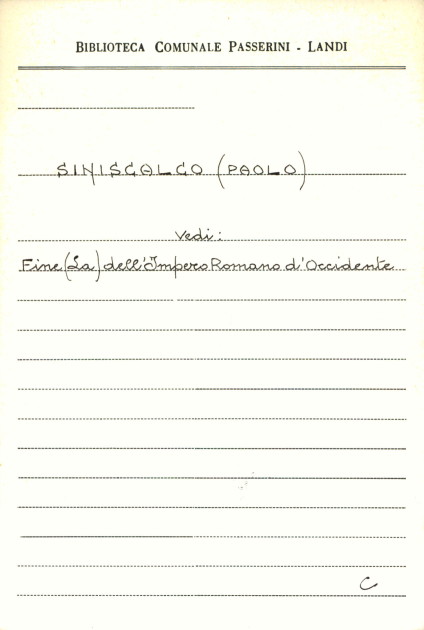 BIBLIOTECA COMUNALE PASSERINI - LANDI
SINISCALCO (PAOLO)
Vedi:
Fine (La) dell'Impero Romano d'Occidente
C